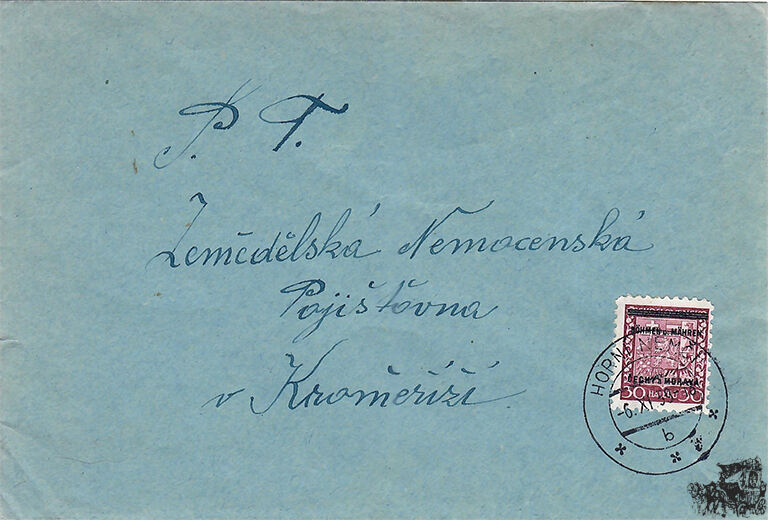 P. T.
Zemědělská Nemocenská
Pojišťovna
v Kroměříži
BÖHMEN u. MÄHREN
ČECHY a MORAVA
30 30
HORN NEM
-6. XI. 39
b